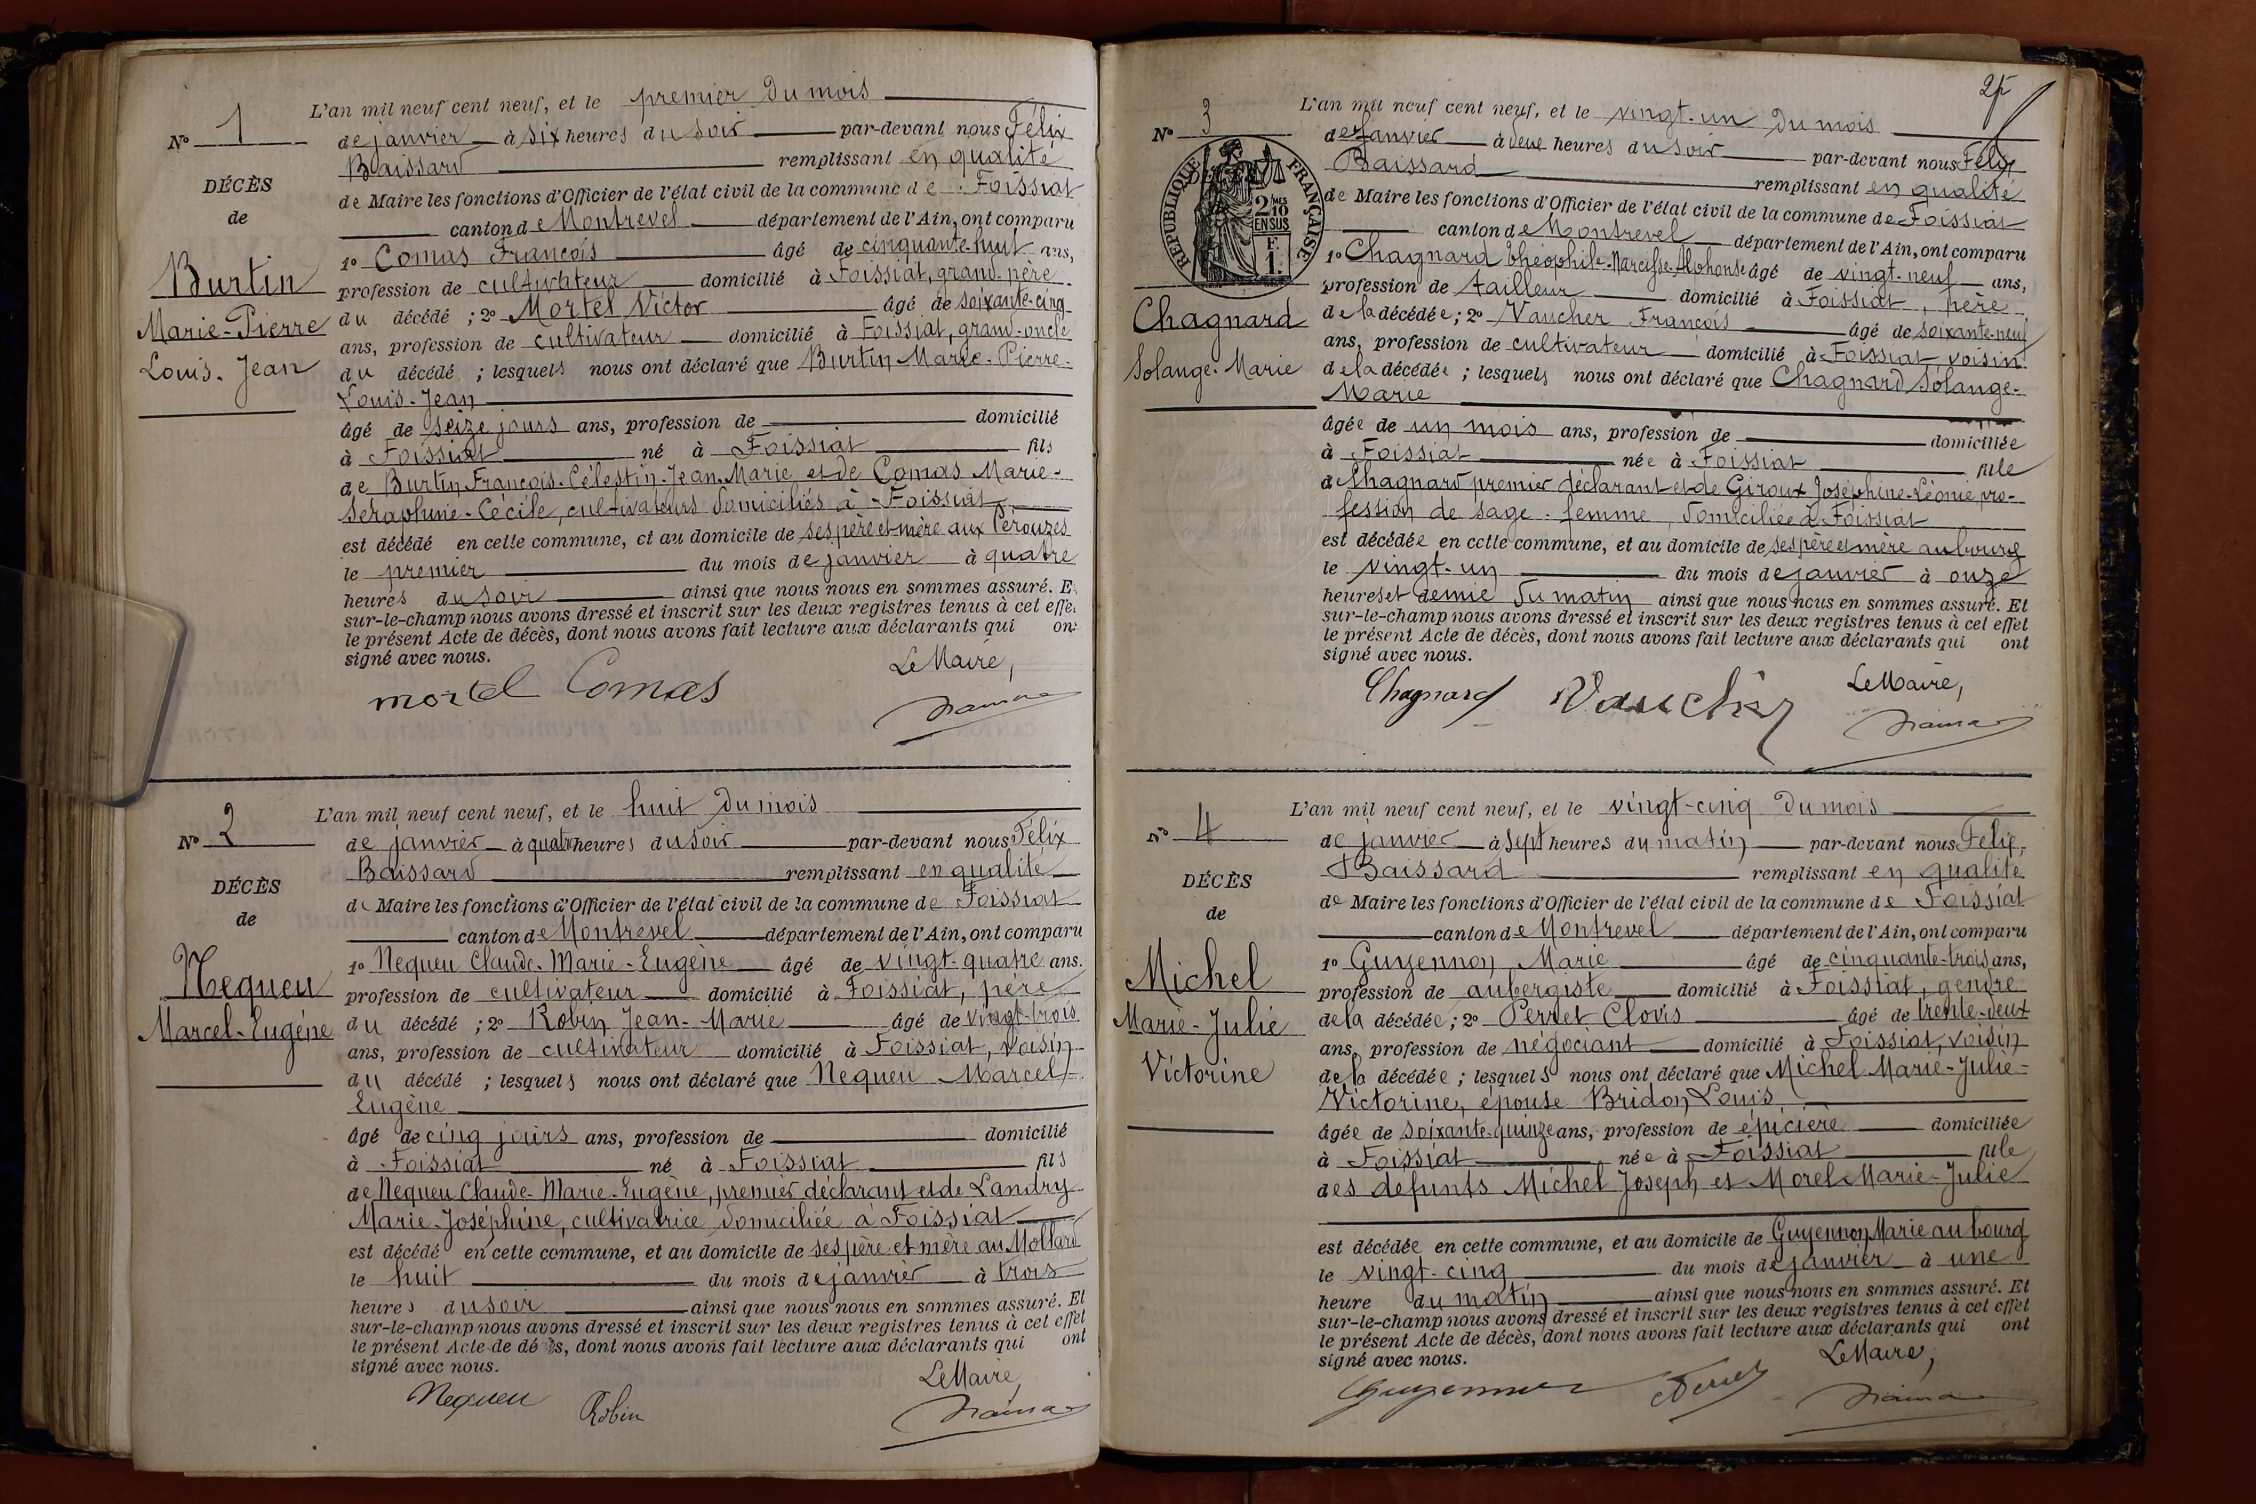 N° 1
DÉCÈS
de
Burtin
Marie-Pierre
Louis-Jean
L'an mil neuf cent neuf, et le premier du mois
de janvier à six heures du soir par-devant nous Félix
Baissard remplissant en qualité
de Maire les fonctions d'Officier de l'état civil de la commune de Foissiat
canton de Montrevel département de l'Ain, ont comparu
1° Comas François âgé de cinquante-huit ans,
profession de cultivateur domicilié à Foissiat, grand-père
du décédé ; 2° Mortel Victor âgé de soixante-cinq
ans, profession de cultivateur domicilié à Foissiat, grand-oncle
du décédé ; lesquels nous ont déclaré que Burtin Marie-Pierre-
Louis-Jean
âgé de seize jours ans, profession de domicilié
à Foissiat né à Foissiat fils
de Burtin François-Célestin-Jean-Marie et de Comas Marie-
Séraphine-Cécile, cultivateurs domiciliés à Foissiat
est décédé en cette commune, et au domicile de ses père et mère aux Pérouzes
le premier du mois de janvier à quatre
heures du soir ainsi que nous nous en sommes assuré. E
sur-le-champ nous avons dressé et inscrit sur les deux registres tenus à cet effe
le présent Acte de décès, dont nous avons fait lecture aux déclarants qui on
signé avec nous.
Le Maire,
mortel Comas
N° 2
DÉCÈS
de
Nequeu
Marcel-Eugène
L'an mil neuf cent neuf, et le huit du mois
de janvier à quatre heures du soir par-devant nous Félix
Baissard remplissant en qualité
de Maire les fonctions d'Officier de l'état civil de la commune de Foissiat
canton de Montrevel département de l'Ain, ont comparu
1° Nequeu Claude-Marie-Eugène âgé de vingt-quatre ans.
profession de cultivateur domicilié à Foissiat, père
du décédé ; 2° Robin Jean-Marie âgé de vingt-trois
ans, profession de cultivateur domicilié à Foissiat, voisin
du décédé ; lesquels nous ont déclaré que Nequeu Marcel-
Eugène
âgé de cinq jours ans, profession de domicilié
à Foissiat né à Foissiat fils
de Nequeu Claude-Marie-Eugène, premier déclarant et de Landry
Marie-Joséphine, cultivatrice domiciliée à Foissiat
est décédé en cette commune, et au domicile de ses père et mère au Mollard
le huit du mois de janvier à trois
heures du soir ainsi que nous nous en sommes assuré. Et
sur-le-champ nous avons dressé et inscrit sur les deux registres tenus à cet effet
le présent Acte de dé s, dont nous avons fait lecture aux déclarants qui ont
signé avec nous.
Le Maire,
Nequeu Robin
25
N° 3
RÉPUBLIQUE FRANÇAISE
2/10 MES
EN SUS
F.
1.
Chagnard
Solange-Marie
L'an mil neuf cent neuf, et le vingt-un du mois
de janvier à deux heures du soir par-devant nous Félix
Baissard remplissant en qualité
de Maire les fonctions d'Officier de l'état civil de la commune de Foissiat
canton de Montrevel département de l'Ain, ont comparu
1° Chagnard Théophile-Narcisse-Alphonse âgé de vingt-neuf ans,
profession de tailleur domicilié à Foissiat, père
de la décédée ; 2° Vaucher François âgé de soixante-neuf
ans, profession de cultivateur domicilié à Foissiat, voisin
de la décédée ; lesquels nous ont déclaré que Chagnard Solange-
Marie
âgée de un mois ans, profession de domiciliée
à Foissiat née à Foissiat fille
de Chagnard premier déclarant et de Giroux Joséphine-Léonie, pro-
fession de sage-femme, domiciliée à Foissiat
est décédée en cette commune, et au domicile de ses père et mère au bourg
le vingt-un du mois de janvier à onze
heures et demie du matin ainsi que nous nous en sommes assuré. Et
sur-le-champ nous avons dressé et inscrit sur les deux registres tenus à cet effet
le présent Acte de décès, dont nous avons fait lecture aux déclarants qui ont
signé avec nous.
Le Maire,
Chagnard Vaucher
N° 4
DÉCÈS
de
Michel
Marie-Julie
Victorine
L'an mil neuf cent neuf, et le vingt-cinq du mois
de janvier à sept heures du matin par-devant nous Félix,
Baissard remplissant en qualité
de Maire les fonctions d'Officier de l'état civil de la commune de Foissiat
canton de Montrevel département de l'Ain, ont comparu
1° Guyennon Marie âgé de cinquante-trois ans,
profession de aubergiste domicilié à Foissiat, gendre
de la décédée ; 2° Perret Clovis âgé de trente-deux
ans, profession de négociant domicilié à Foissiat, voisin
de la décédée ; lesquels nous ont déclaré que Michel Marie-Julie-
Victorine, épouse Bridon Louis,
âgée de soixante-quinze ans, profession de épicière domiciliée
à Foissiat née à Foissiat fille
des défunts Michel Joseph et Morel Marie-Julie
est décédée en cette commune, et au domicile de Guyennon Marie au bourg
le vingt-cinq du mois de janvier à une
heure du matin ainsi que nous nous en sommes assuré. Et
sur-le-champ nous avons dressé et inscrit sur les deux registres tenus à cet effet
le présent Acte de décès, dont nous avons fait lecture aux déclarants qui ont
signé avec nous.
Le Maire,
Guyennon Perret